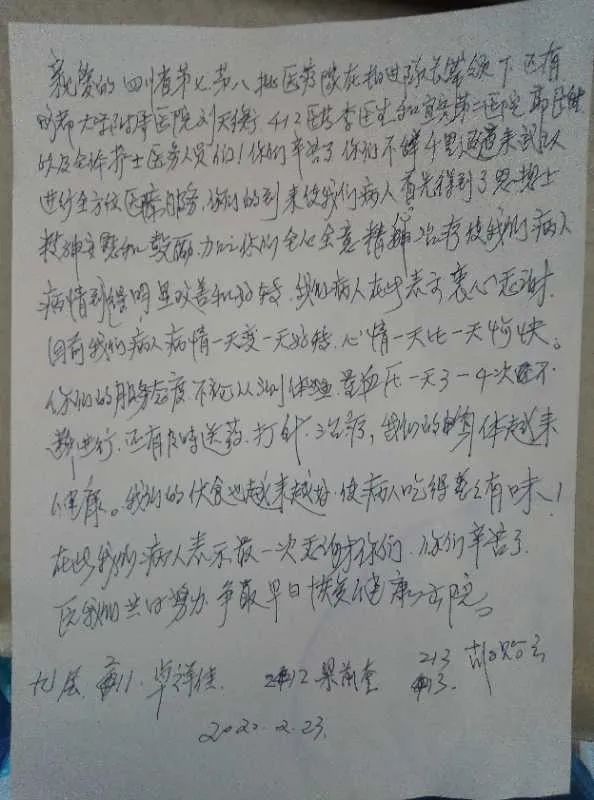 亲爱的四川省第七.第八批医疗队在杨进 带领下 还有
大学附属医院刘天衡 412医 李医生和宜宾第二医院 医生
以及全体护士医务人员们！你们辛苦了 你们不辞千里 来武汉
进行全方位医疗服务.你们的到来使我们病人首先得到了思想上
精神安慰和鼓励.加之你们全心全意精神治疗使我们病人
病情到得明显改善和好转.我们病人在此表示衷心感谢.
目前我们病人病情一天变一天好转.心情一天比一天愉快。
你们的服务态度.不论从测体温 量血压.一天3一4次 不
断进行.还有及时送药.打针.治疗，我们的身体越来
健康。我们的伙食也越来越好.使病人吃得 有味！
在此我们病人表示最一次感谢你们.你们辛苦了
医我们共同努力.争取早日恢复健康.出院。
九层. 11.卓祥 12 梁 213 13. 胡
2020.2.23.